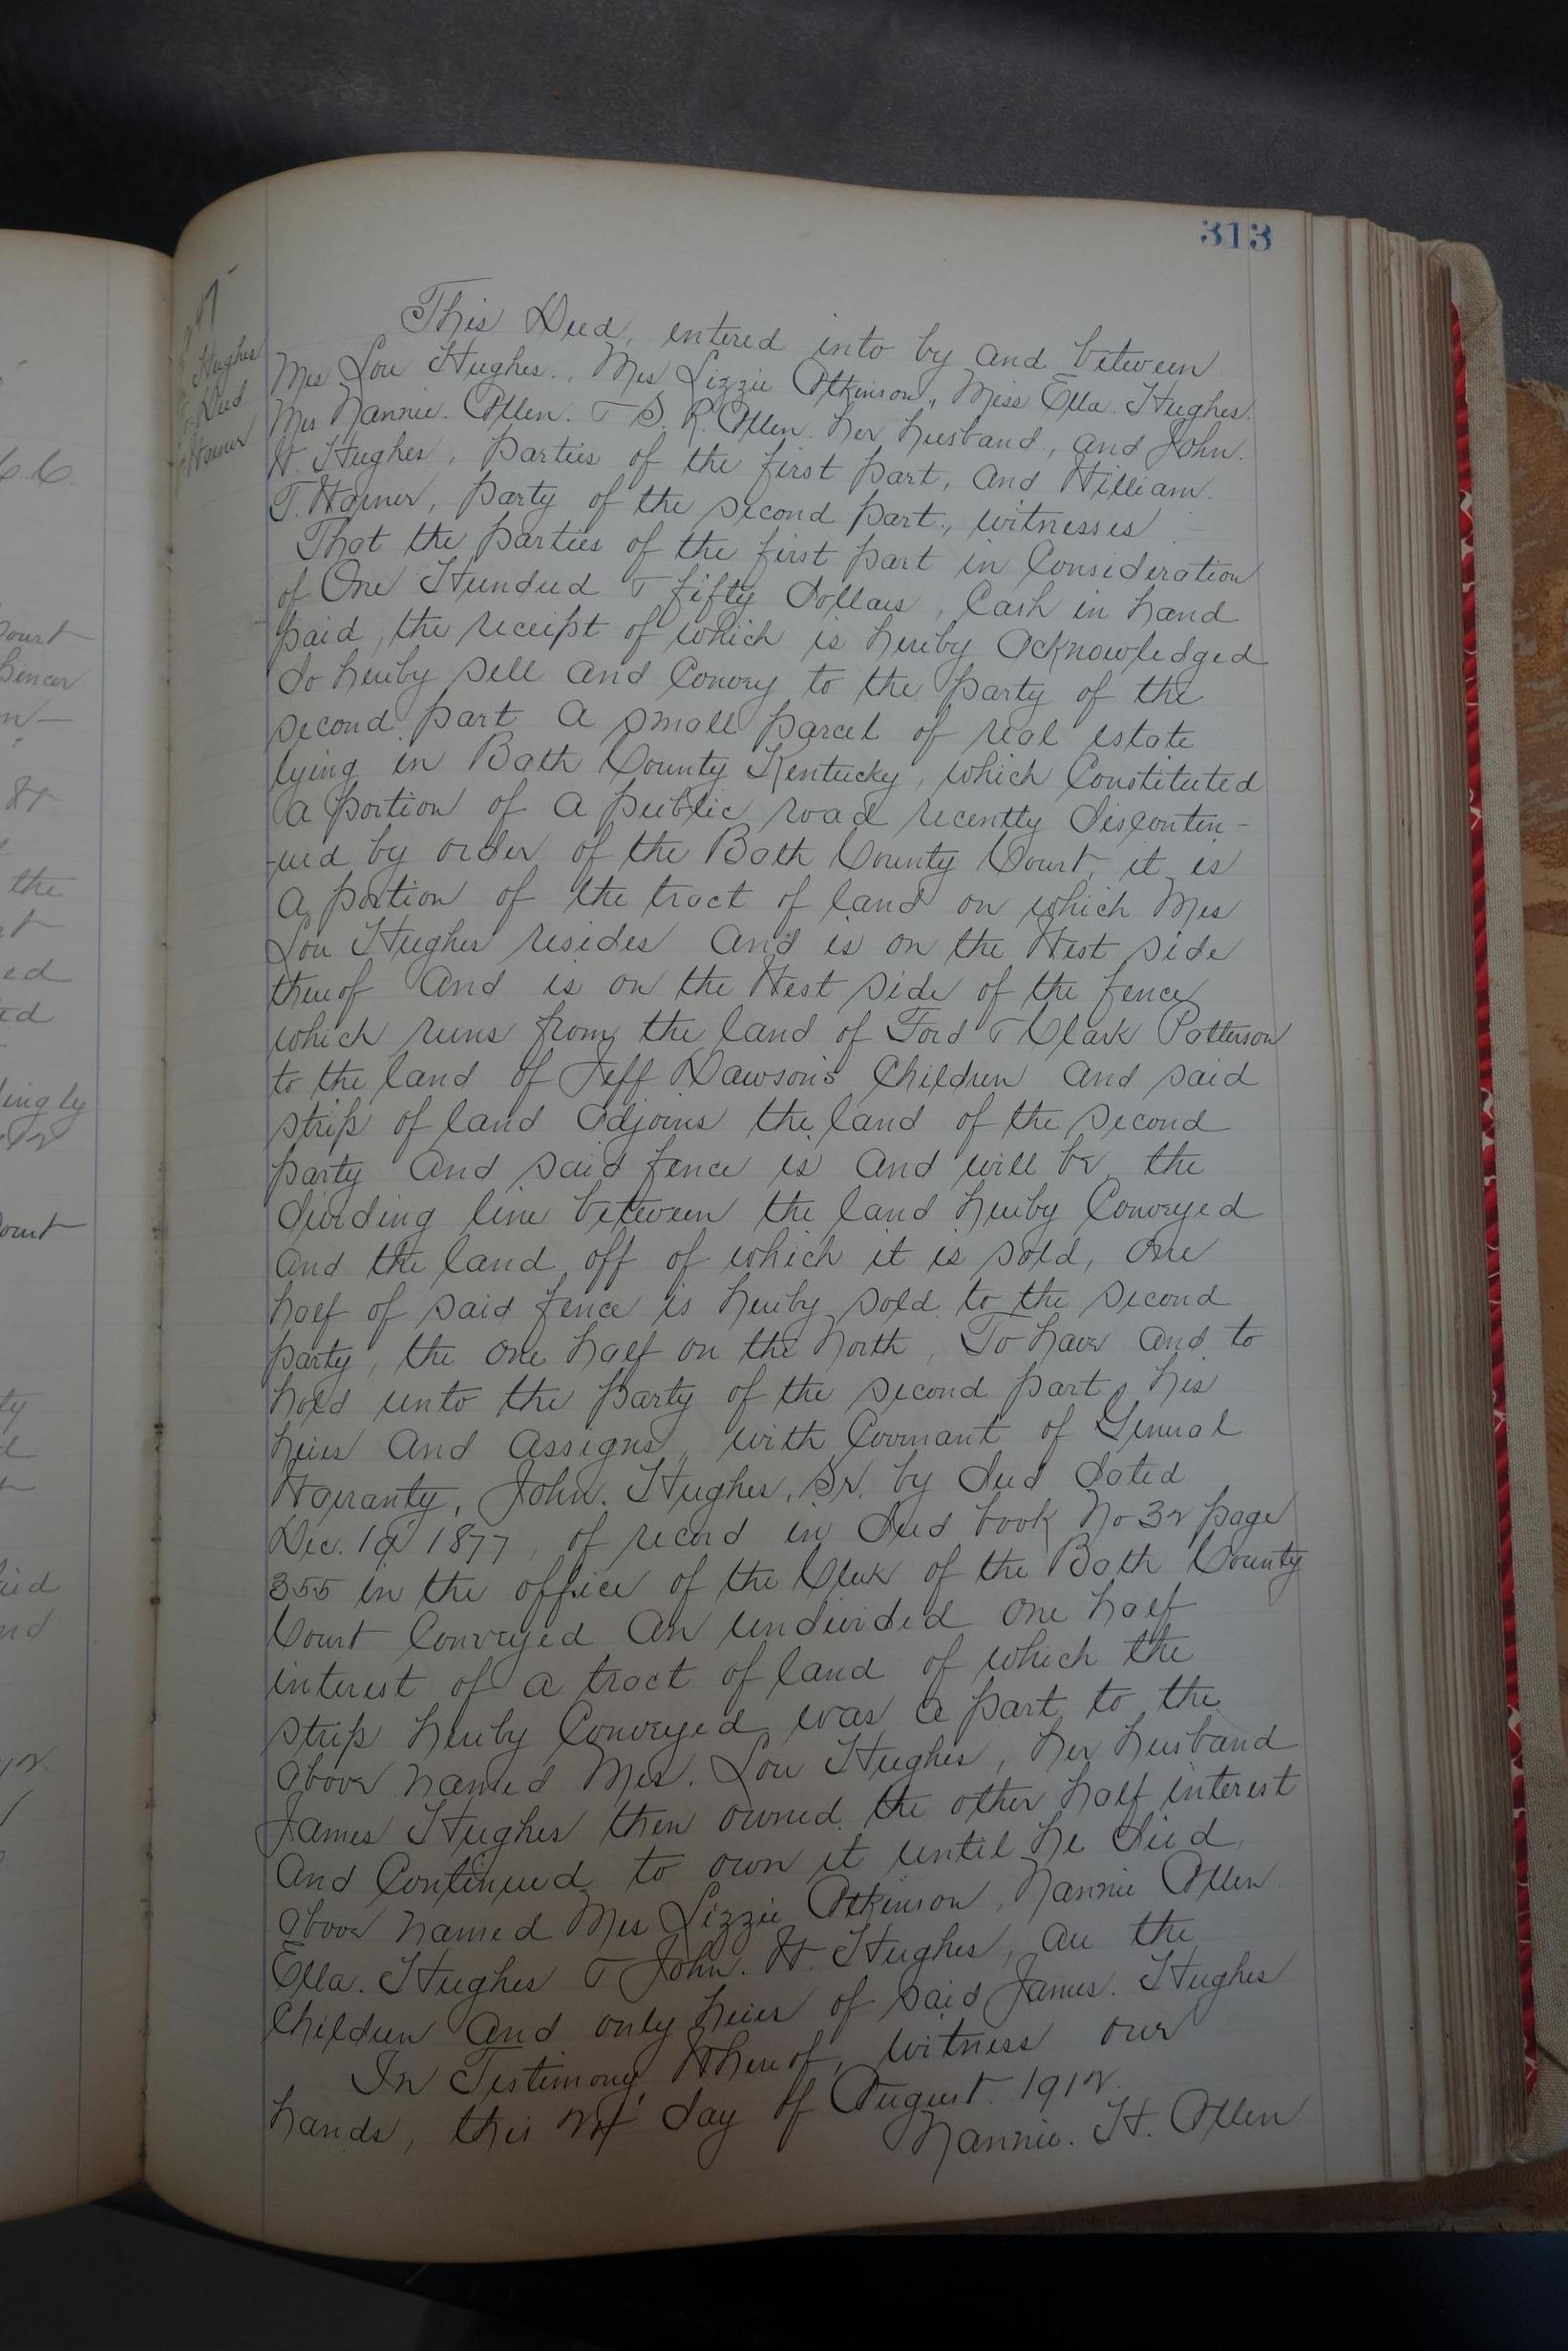 313
Hughes
Deed
This Deed, entered into by and between
Mrs Lou Hughes., Mrs Lizzie Atkinson,, Miss Ella. Hughes.
Mrs Nannie. Allen. & S. R. Allen. her husband., and John.
W. Hughes, parties of the first part, and William.
T. Warner, party of the second part., witnesses
That the parties of the first part in Consideration
of One Hundred & fifty dollars, Cash in hand
paid, the receipt of which is hereby Acknowledged
do hereby sell and Convey to the party of the
second part a small parcel of real estate
lying in Bath County Kentucky, which Constituted
a portion of a public road recently discontin-
-ued by order of the Bath County Court, it is
a portion of the tract of land on which Mrs
Lou Hughes resides and is on the West side
thereof And is on the West side of the fence
which runs from the land of Ford & Clark Patterson
to the land of Jeff Dawson's Children and said
strip of land adjoins the land of the second
party and said fence is and will be the
dividing line between the land hereby Conveyed
and the land off of which it is sold, one
half of said fence is hereby sold to the second
party, the one half on the North, To have and to
hold unto the party of the second part, his
heirs and assigns, with Covenant of General
Warranty, John. Hughes, Sr. by deed dated
Dec. 1877, of record in deed book No 32 page
355 in the office of the Clerk of the Bath County
Court Conveyed an undivided one half
interest of a tract of land of which the
strip hereby Conveyed was a part to the
above named Mrs. Lou Hughes, her husband
James Hughes then owned the other half interest
and Continued to own it until he died,
above named Mrs Lizzie Atkinson, Nannie Allen.
Ella. Hughes & John. W. Hughes, are the
Children and only heirs of said James. Hughes
In Testimony Whereof, witness our
hands, this day of August. 1912.
Nannie. H. Allen